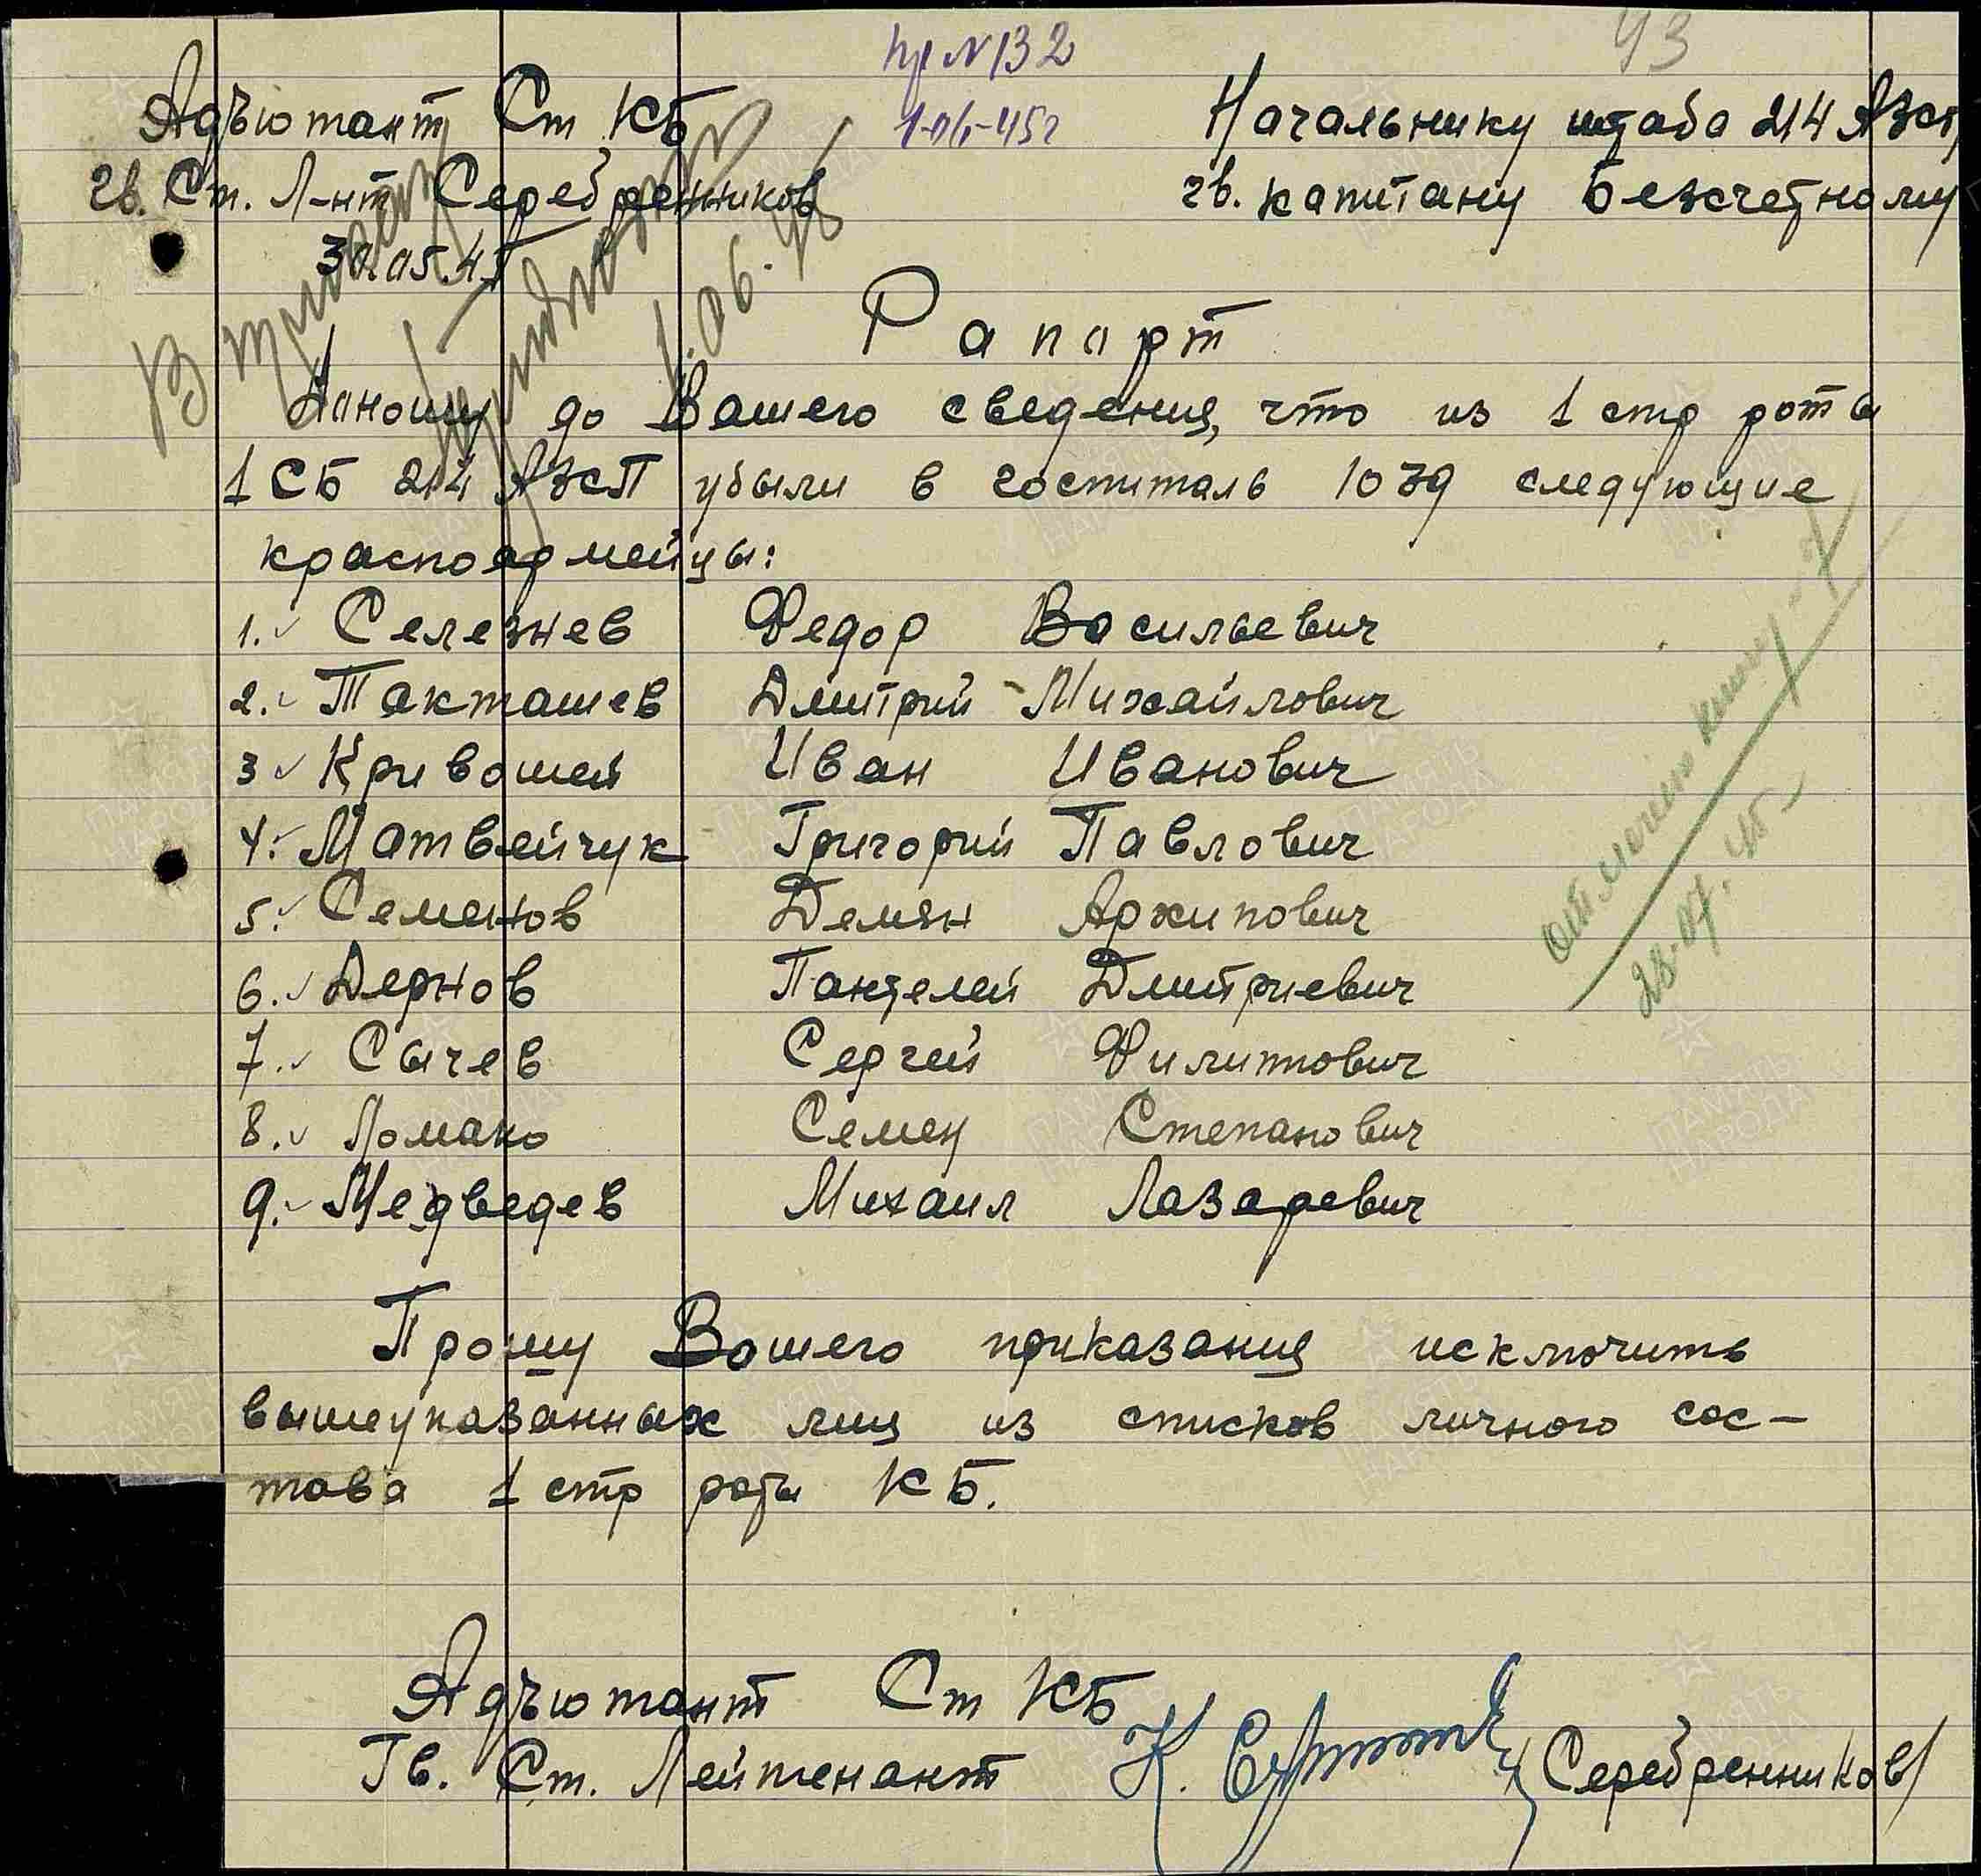 пр №132
43
1-06-45г
Адъютант Ст КБ
гв. Ст. Л-нт Серебренников
30.05.45
Начальнику штаба 214 АЗСП
гв. капитану Безсчетному
В приказ
1.06.45
Рапорт
Доношу до Вашего сведения, что из 1 стр роты
1 СБ 214 АЗСП убыли в госпиталь 1039 следующие
красноармейцы:
1. Селезнев Федор Васильевич
2. Такташев Дмитрий Михайлович
3 Кривошей Иван Иванович
4. Матвейчук Григорий Павлович
5. Семенов Демян Архипович
6. Дернов Пантелей Дмитриевич
7. Сычев Сергей Филиппович
8. Ломако Семен Степанович
9. Медведев Михаил Лазаревич
отмечено
28.07.45
Прошу Вашего приказания исключить
вышеуказанных лиц из списков личного сос-
тава 1 стр роты КБ.
Адъютант Ст КБ
Гв. Ст. Лейтенант /Серебренников/
ПАМЯТЬ НАРОДА